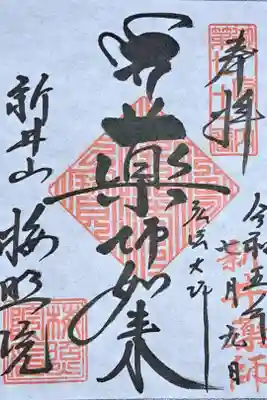 奉拝
令和五年
七月九日
弘法大師
薬師如来
新井山
梅照院
新井薬師